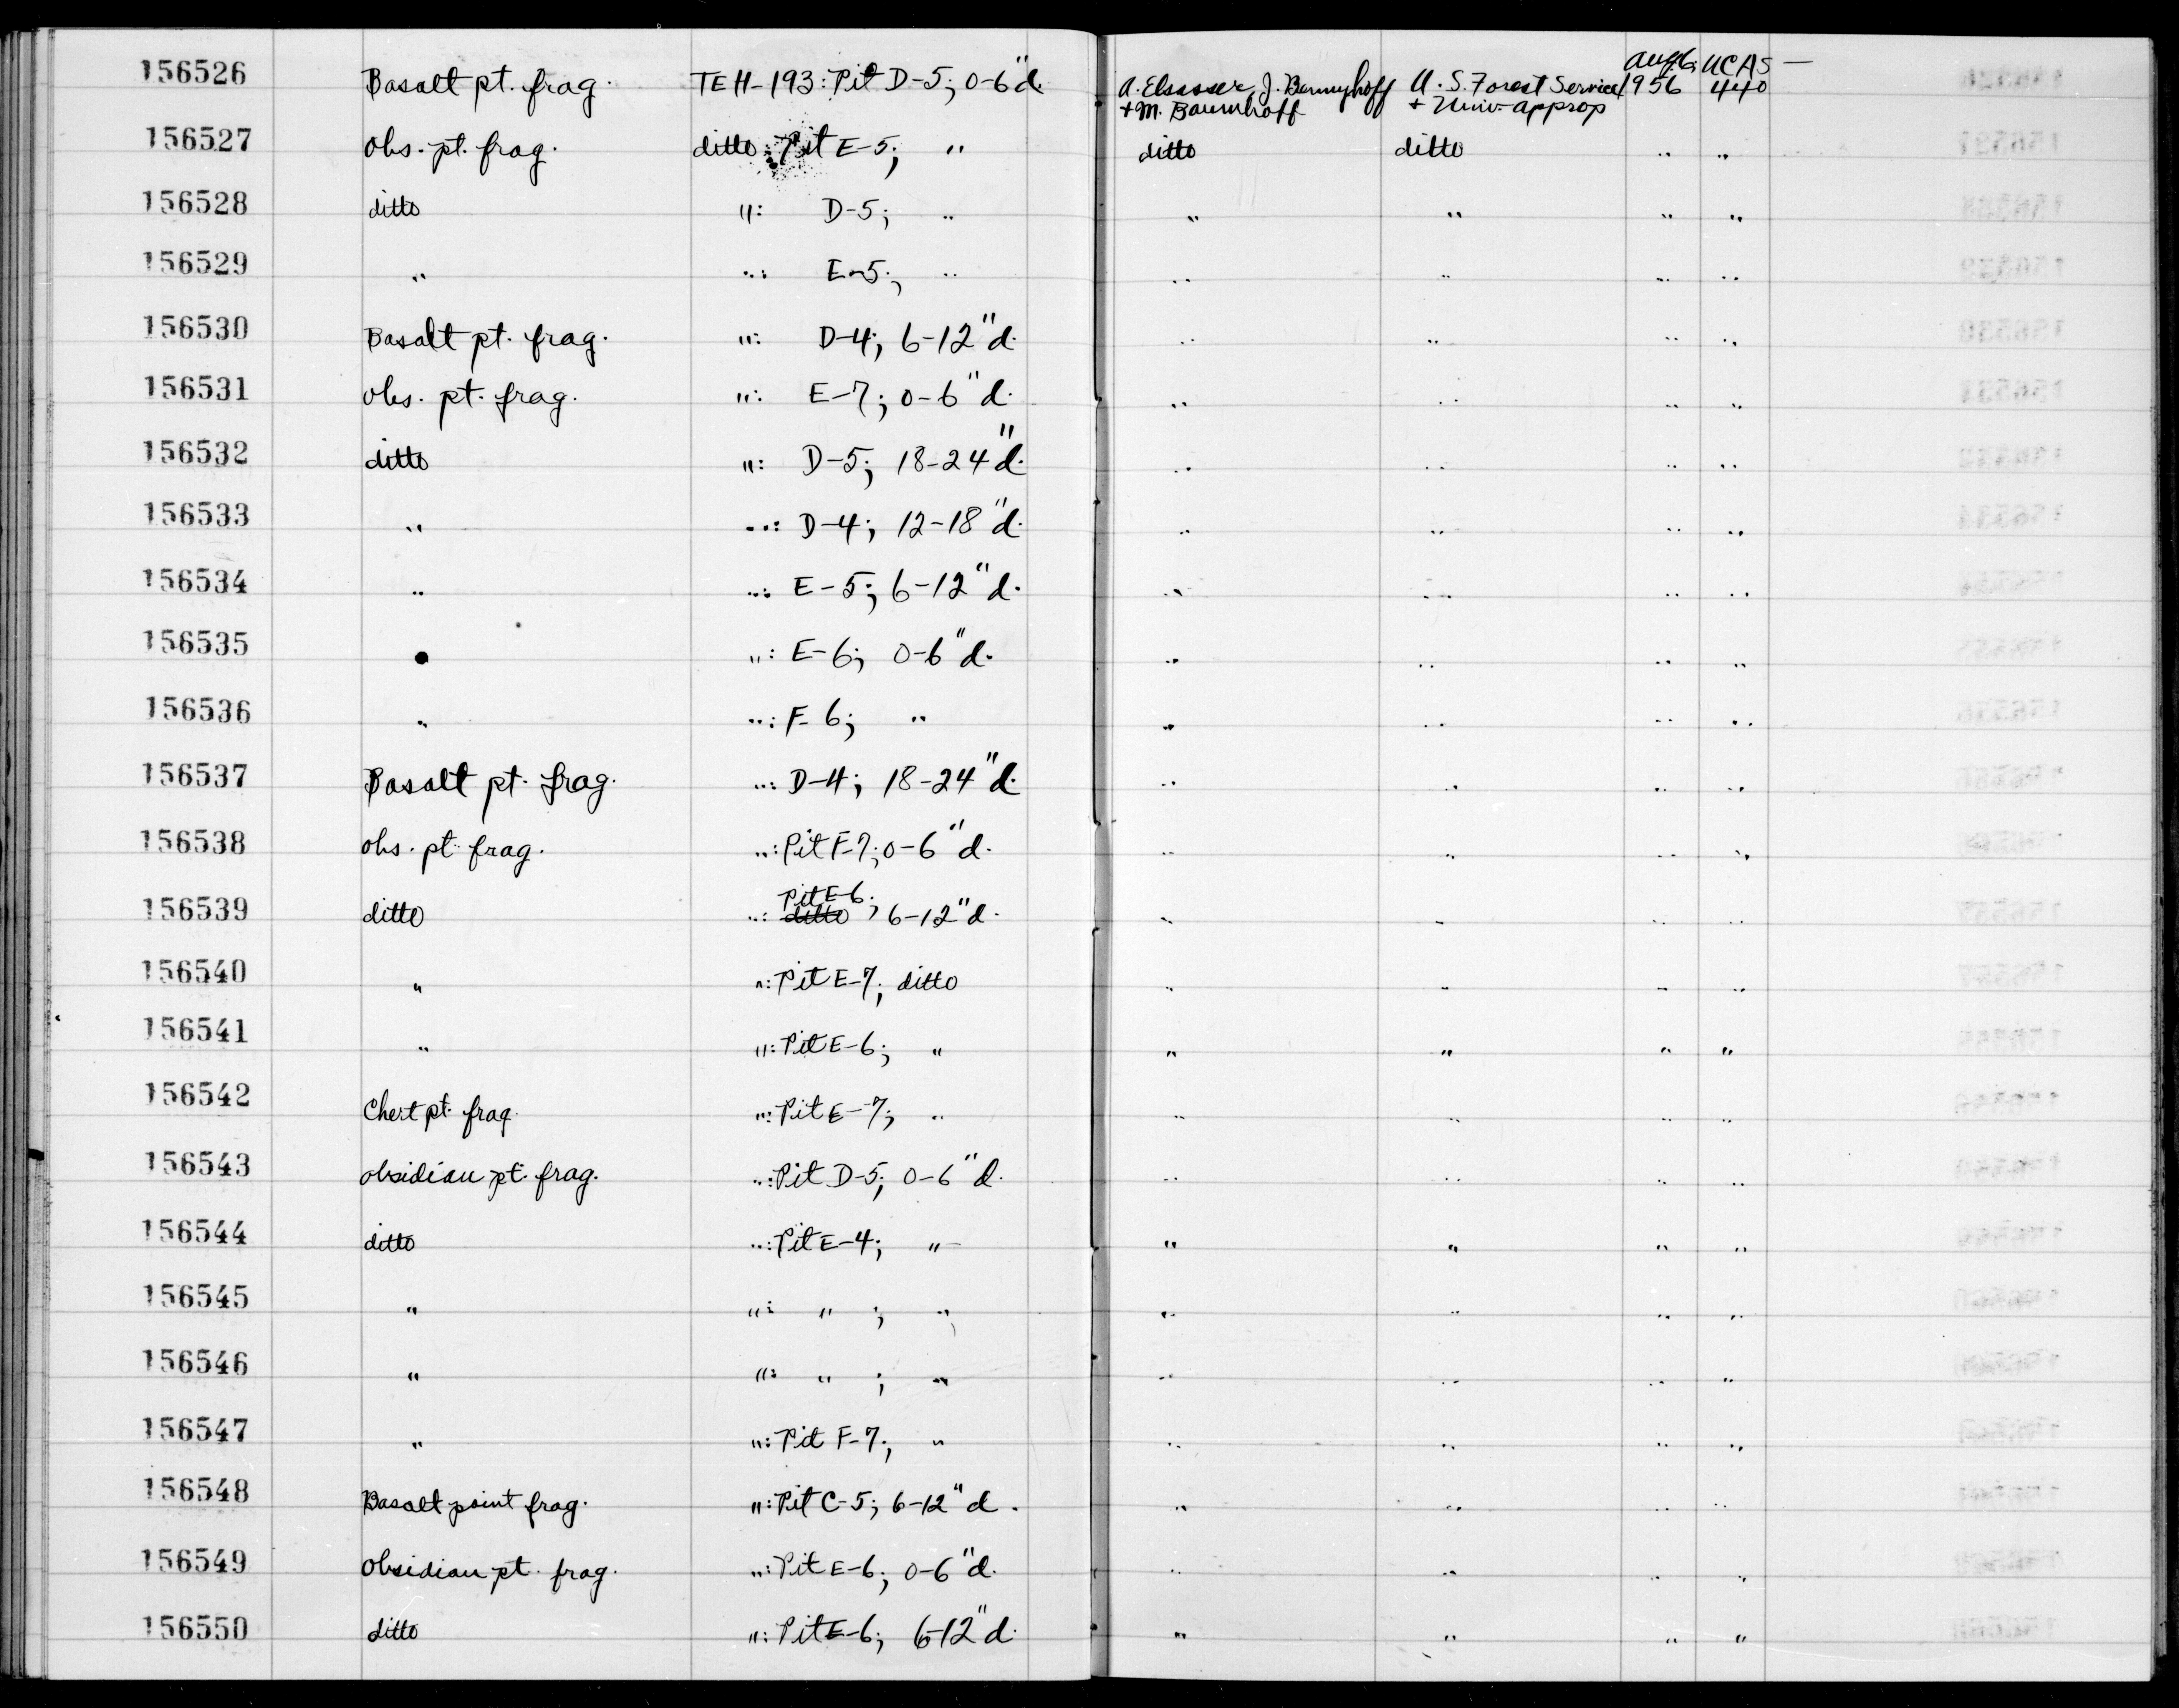 156526 Basalt pt. frag. TEH-193: Pit D-5; 0-6"d. A. Elsasser, J. Bennyhoff + M. Baumhoff U.S. Forest Service + Univ. approp 1956 UCAS 440 —
156527 obs. pt. frag. ditto: Pit E-5; " ditto ditto " "
156528 ditto ": D-5; " " " " "
156529 " ": E-5; " " " " "
156530 Basalt pt. frag. ": D-4; 6-12"d. " " " "
156531 obs. pt. frag. ": E-7; 0-6"d. " " " "
156532 ditto ": D-5; 18-24"d. " " " "
156533 " ": D-4; 12-18"d. " " " "
156534 " ": E-5; 6-12"d. " " " "
156535 " ": E-6; 0-6"d. " " " "
156536 " ": F-6; " " " " "
156537 Basalt pt. frag. ": D-4; 18-24"d. " " " "
156538 obs. pt. frag. ": Pit F-7; 0-6"d. " " " "
156539 ditto ": ditto Pit E-6; 6-12"d. " " " "
156540 " ": Pit E-7; ditto " " " "
156541 " ": Pit E-6; " " " " "
156542 Chert pt. frag. ": Pit E-7; " " " " "
156543 obsidian pt. frag. ": Pit D-5; 0-6"d. " " " "
156544 ditto ": Pit E-4; " " " " "
156545 " ": " ; " " " " "
156546 " ": " ; " " " " "
156547 " ": Pit F-7; " " " " "
156548 Basalt point frag. ": Pit C-5; 6-12"d. " " " "
156549 Obsidian pt. frag. ": Pit E-6; 0-6"d. " " " "
156550 ditto ": Pit E-6; 6-12"d. " " " "